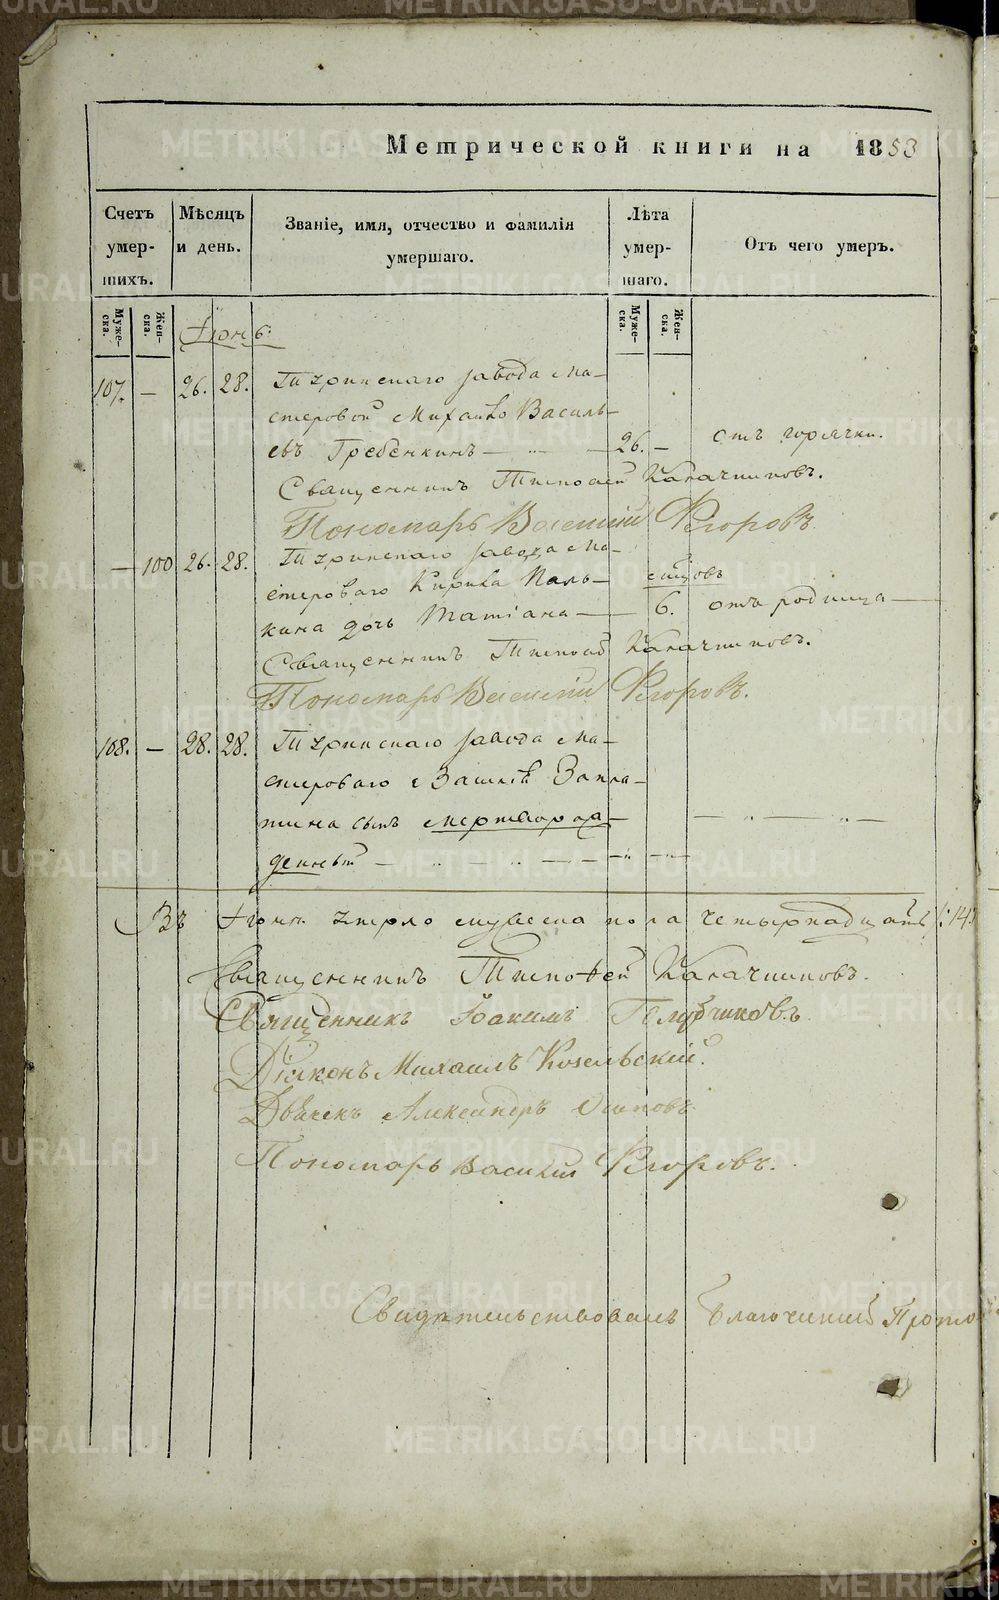 Метрической книги на 1853
Счетъ умер-шихъ. Мѣсяцъ и день. Званіе, имя, отчество и фамилія умершаго. Лѣта умер-шаго. Отъ чего умеръ.
Муже-ска. Жен-ска. Муже-ска. Жен-ска.
Іюнь
107. — 26. 28. завода Ма-
стеровой Михайло Василь-
евъ Гребенкинъ — 26. — отъ горячки.
Священникъ Тимофей Калачниковъ.
Пономарь Василий Егоровъ
— 100 26. 28. завода Ма-
стероваго Кирика Паль- сицовъ
кина дочь Татіана — 6. отъ родимца —
Священникъ Тимофей Калачниковъ.
Пономарь Василій Егоровъ.
108. — 28. 28. завода Ма-
стероваго
сынъ мертворож-
денный — — —
Въ Іюнѣ умерло мужеска пола четырнадцать /:14:/
Священникъ Тимофей Калачниковъ.
Священникъ Іоакимъ
Діяконъ Михаилъ Козельскій.
Дьячекъ Александръ Осиповъ
Пономарь Василий Егоровъ.
Свидѣтельствовалъ Благочинный Прото
METRIKI.GASO-URAL.RU